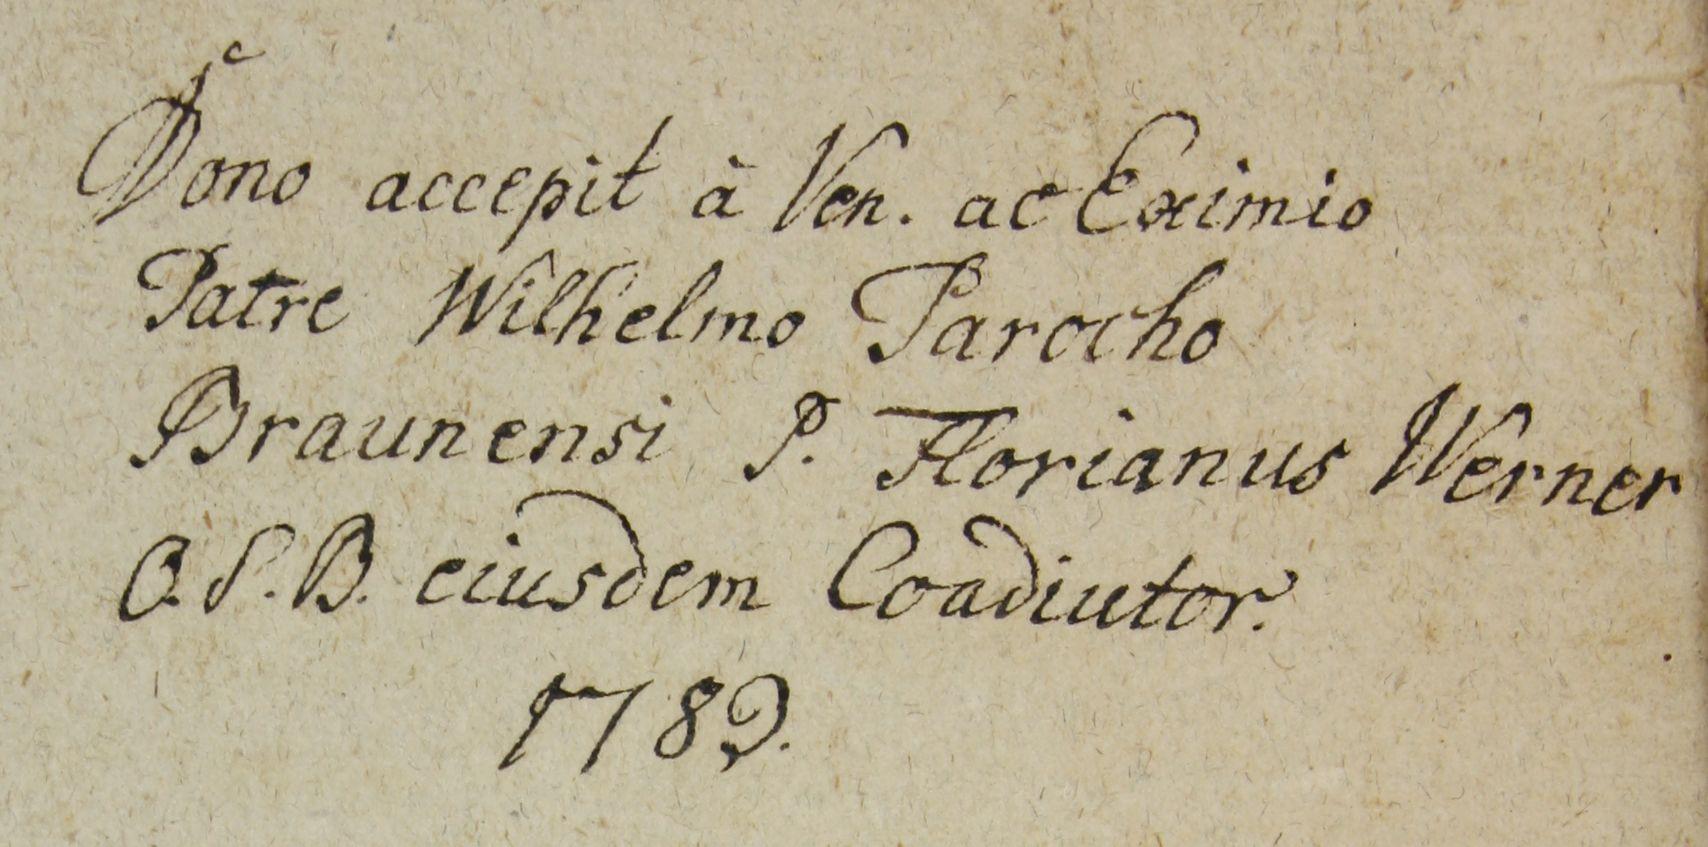 Dono accepit à Ven. ac Eximio
Patre Wilhelmo Parocho
Braunensi P. Florianus Werner
O.S.B. eiusdem Coadiutor.
1789.